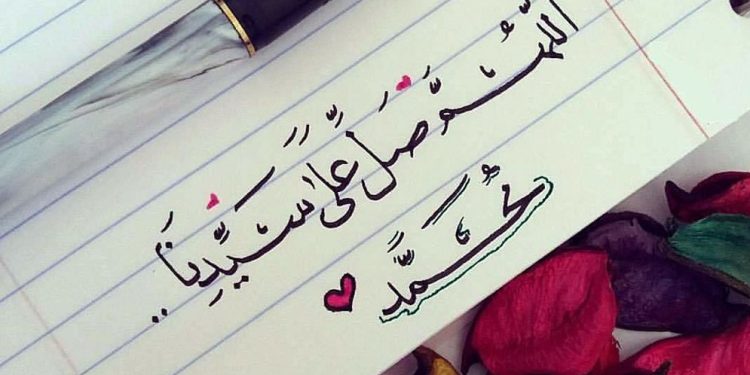 اللّهُمَّ صَلِّ عَلَى سَيِّدِنَا..
مُحَمَّد